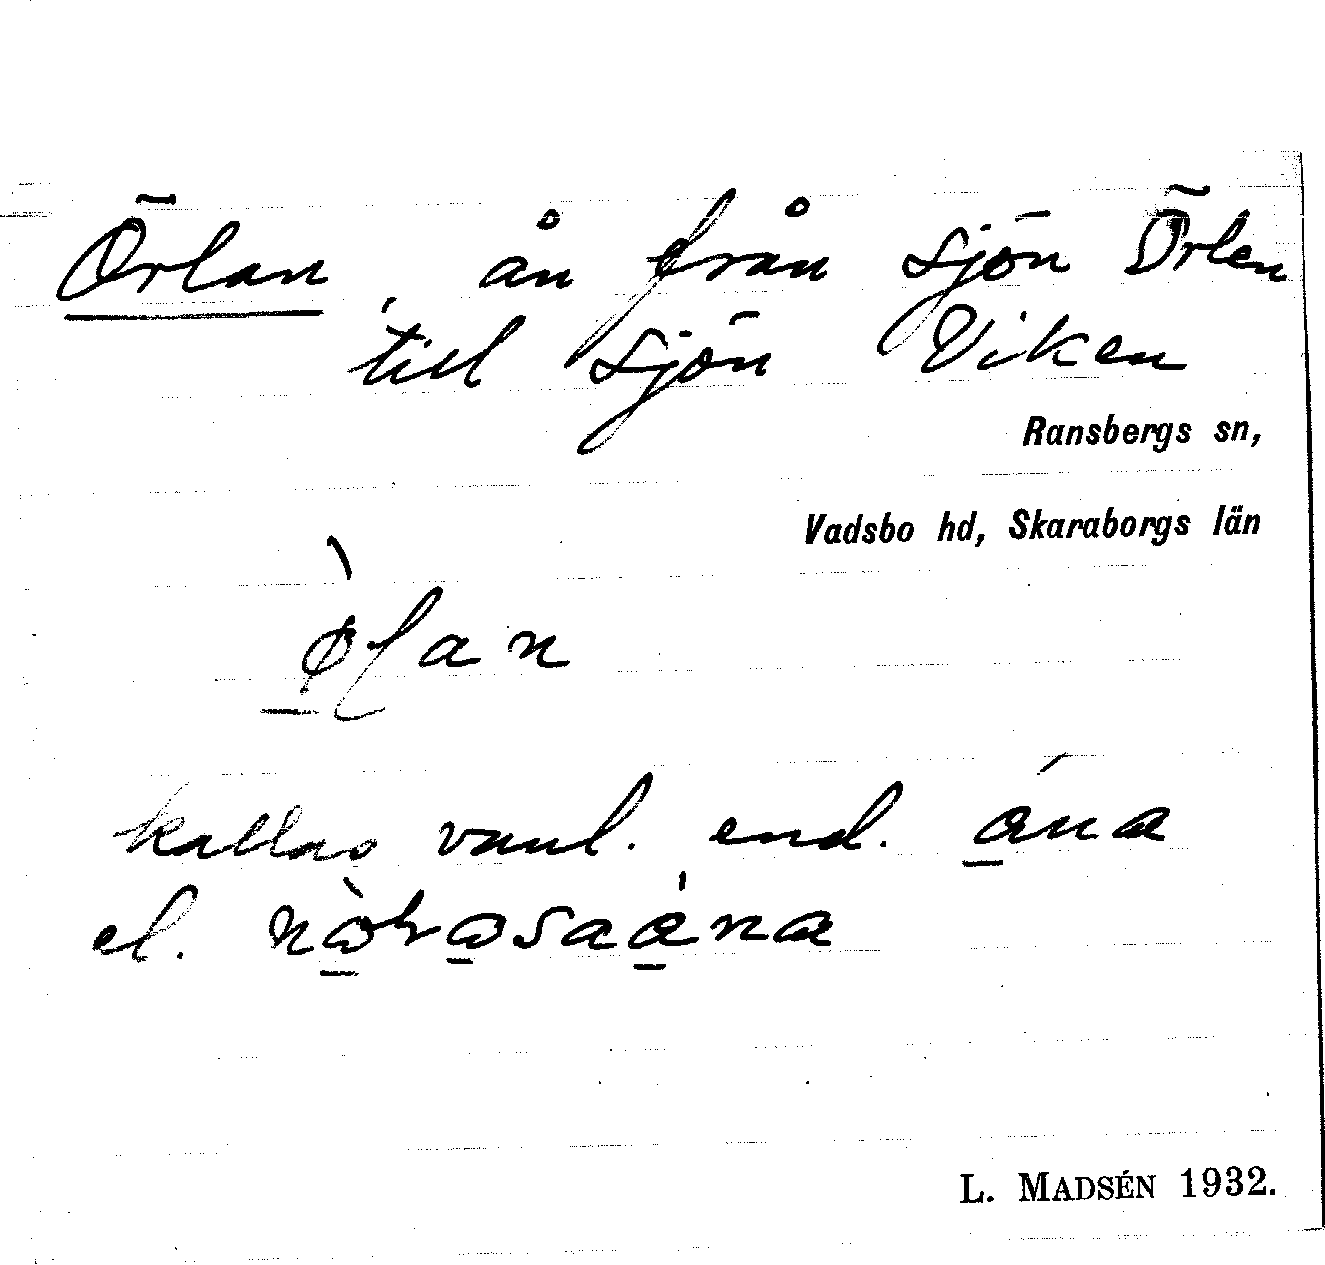 Örlan, ån från sjön Örlen
till sjön Viken
Ransbergs sn,
Vadsbo hd, Skaraborgs län
kallas vanl. end.
el.
L. MADSÉN 1932.